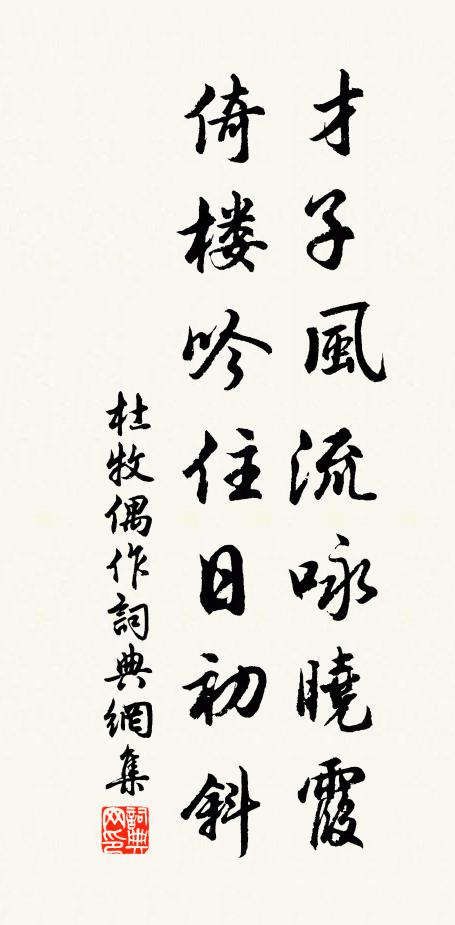 才子風流咏曉霞
倚楼吟住日初斜
杜牧偶作詞典網集
詞典网印